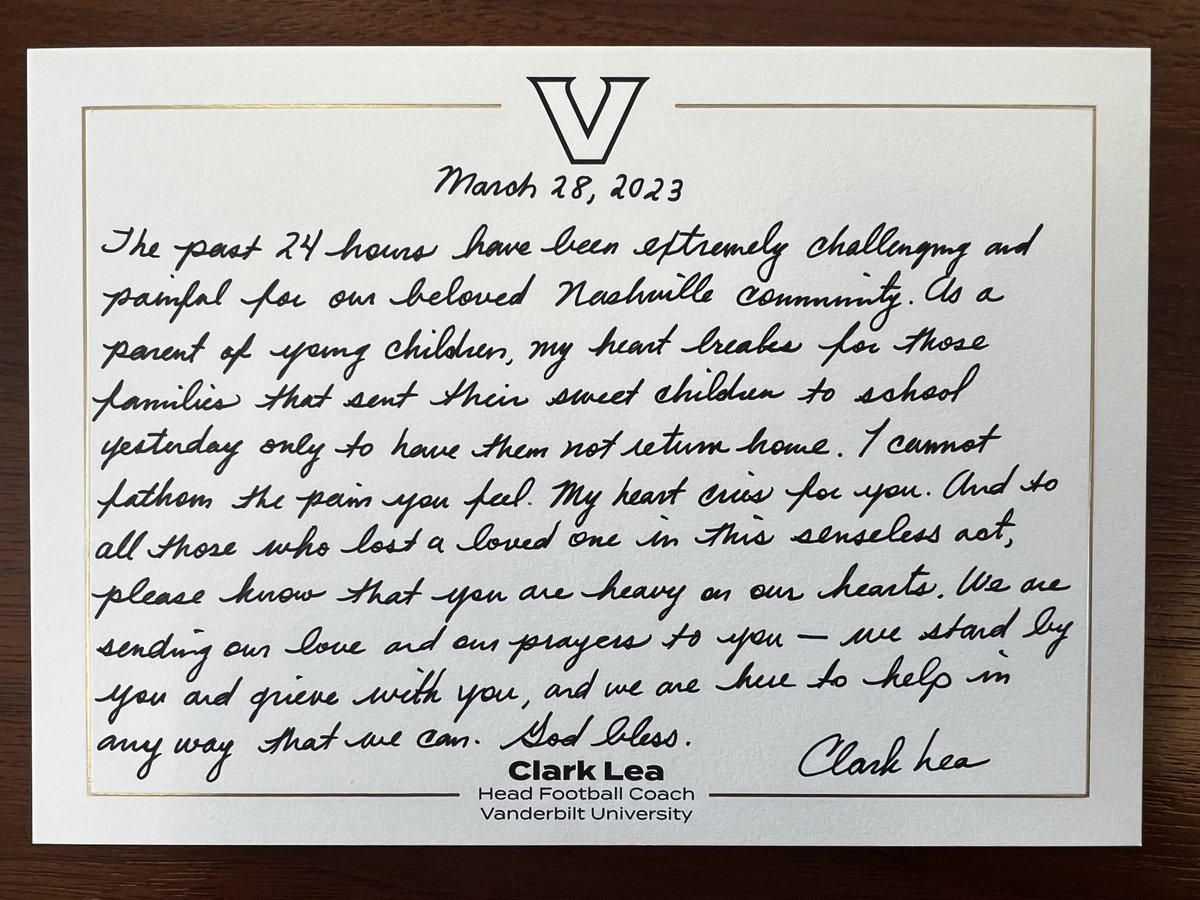 V
March 28, 2023
The past 24 hours have been extremely challenging and
painful for our beloved Nashville community. As a
parent of young children, my heart breaks for those
families that sent their sweet children to school
yesterday only to have them not return home. I cannot
fathom the pain you feel. My heart cries for you. And to
all those who lost a loved one in this senseless act,
please know that you are heavy on our hearts. We are
sending our love and our prayers to you — we stand by
you and grieve with you, and we are here to help in
any way that we can. God bless.
Clark Lea
Clark Lea
Head Football Coach
Vanderbilt University